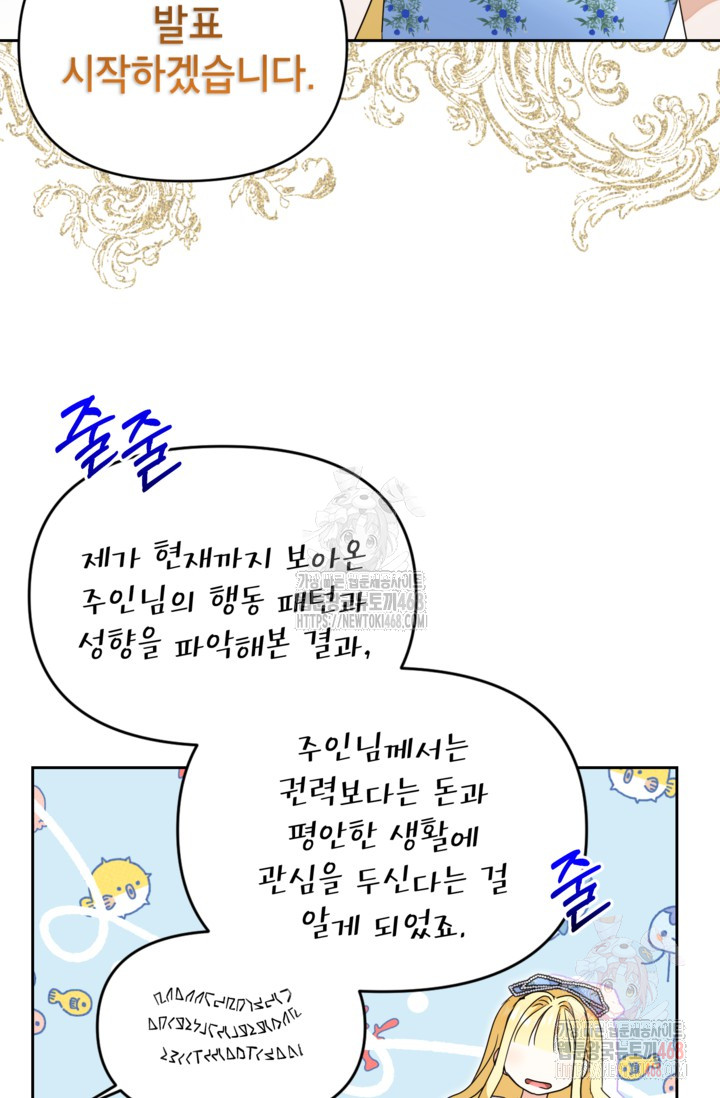 발표
시작하겠습니다.
줄줄
제가 현재까지 보아온
주인님의 행동 패턴과
성향을 파악해본 결과,
가장 빠른 웹툰제공사이트
웹툰왕국뉴토끼468
HTTPS://NEWTOKI468.COM
주인님께서는
권력보다는 돈과
평안한 생활에
관심을 두신다는 걸
알게 되었죠.
줄
가장 빠른 웹툰제공사이트
웹툰왕국뉴토끼468